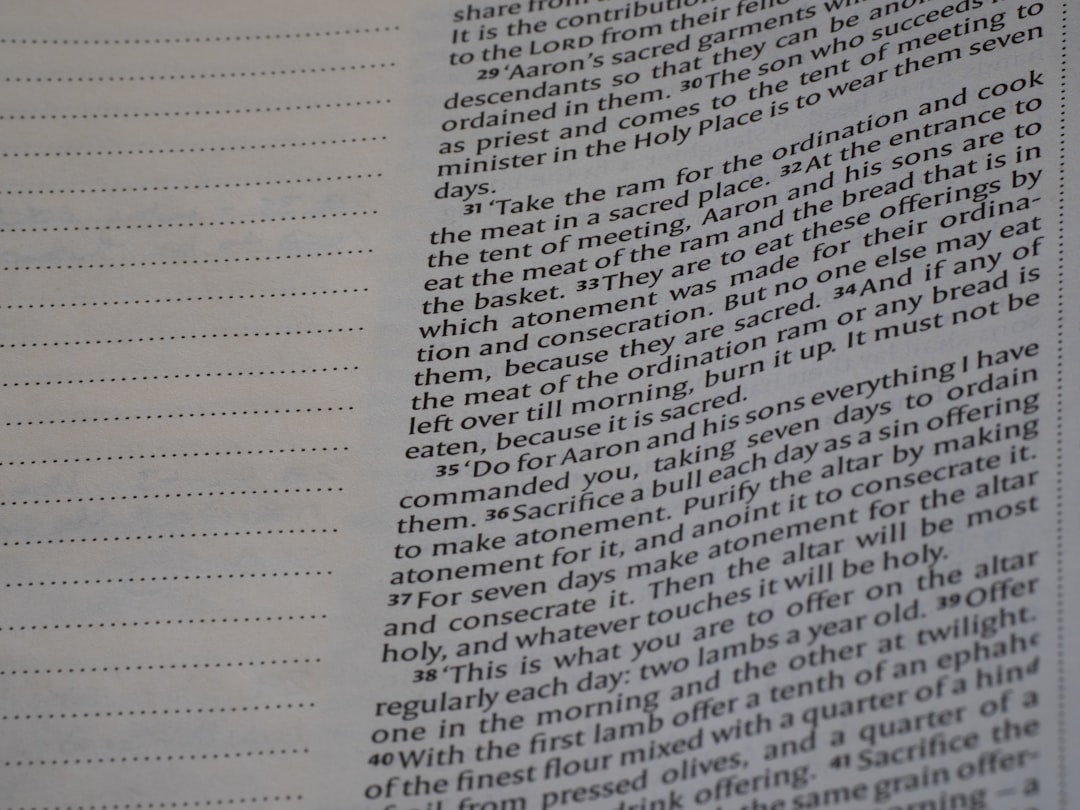 share from
It is the contribution
to the LORD from their fello
29 ‘Aaron’s sacred garments wi
descendants so that they can be anoi
ordained in them. 30The son who succeeds
as priest and comes to the tent of meeting to
minister in the Holy Place is to wear them seven
days.
31 ‘Take the ram for the ordination and cook
the meat in a sacred place. 32At the entrance to
the tent of meeting, Aaron and his sons are to
eat the meat of the ram and the bread that is in
the basket. 33They are to eat these offerings by
which atonement was made for their ordina-
tion and consecration. But no one else may eat
them, because they are sacred. 34And if any of
the meat of the ordination ram or any bread is
left over till morning, burn it up. It must not be
eaten, because it is sacred.
35 ‘Do for Aaron and his sons everything I have
commanded you, taking seven days to ordain
them. 36Sacrifice a bull each day as a sin offering
to make atonement. Purify the altar by making
atonement for it, and anoint it to consecrate it.
37For seven days make atonement for the altar
and consecrate it. Then the altar will be most
holy, and whatever touches it will be holy.
38 ‘This is what you are to offer on the altar
regularly each day: two lambs a year old. 39Offer
one in the morning and the other at twilight.
40With the first lamb offer a tenth of an ephahc
of the finest flour mixed with a quarter of a hind
of oil from pressed olives, and a quarter of a
drink offering. 41Sacrifice the
the same grain offer-
morning – a